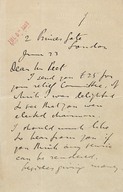 2 Princes Gate
London
June 23
Dear Mr Peet
I send you £25 for
your relief Committee, &
while I was delighted
to see that you were
elected chairman
I should much like
to hear from you if
you think any service
can be rendered,
besides giving money